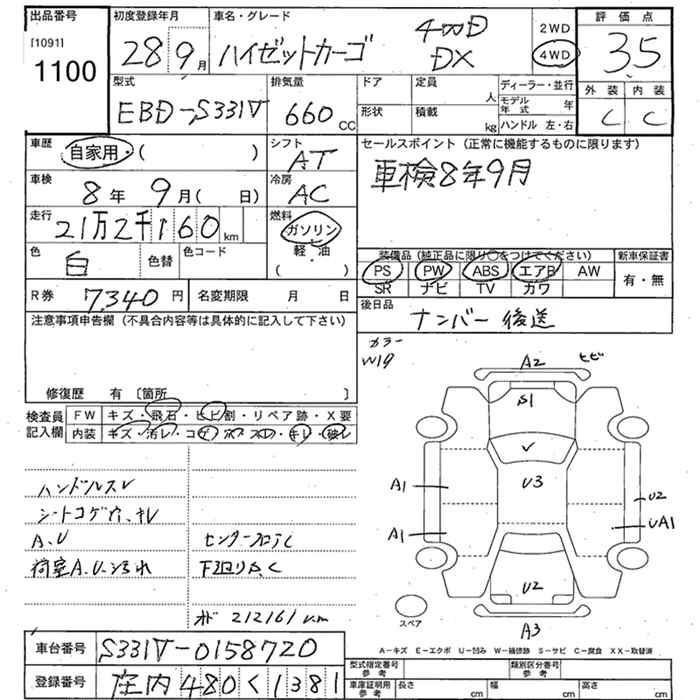 出品番号
[1091]
1100
初度登録年月
28 9月
車名・グレード
ハイゼットカーゴ
4WD
DX
2WD
4WD
評価点
3.5
外装 内装
C C
型式
EBD-S331V
排気量
660 CC
ドア
形状
定員
人
積載
kg
ディーラー・並行
モデル年式 年
ハンドル 左・右
車歴
自家用 ( )
シフト
AT
車検
8年 9月( 日)
冷房
AC
走行
21万2千160 km
燃料
ガソリン
軽・油
( )
色
白
色替
色コード
R券 7340 円
名変期限 月 日
セールスポイント(正常に機能するものに限ります)
車検8年9月
装備品(純正品に限り○をつけてください)
新車保証書
PS PW ABS エアB AW
SR ナビ TV カワ
有・無
後日品
ナンバー後送
注意事項申告欄(不具合内容等は具体的に記入して下さい)
修復歴 有 〔箇所 〕
検査員記入欄
FW キズ・飛石・ヒビ割・リペア跡・X要
内装 キズ・汚レ・コゲ・穴・スレ・キレ・破レ
ハンドルスレ
A.U
荷室A.U.汚れ
下廻りサビ
212161 km
カラー
W19
A2
ヒビ
S1
U3
A1
A1
U2
UA1
U2
A3
スペア
A-キズ E-エクボ U-凹み W-補修跡 S-サビ C-腐食 XX-取替済
車台番号
S331V-0158720
登録番号
庄内 480 く 1381
型式指定番号
参考
類別区分番号
参考
車庫証明用
参考
長さ cm
幅 cm
高さ cm